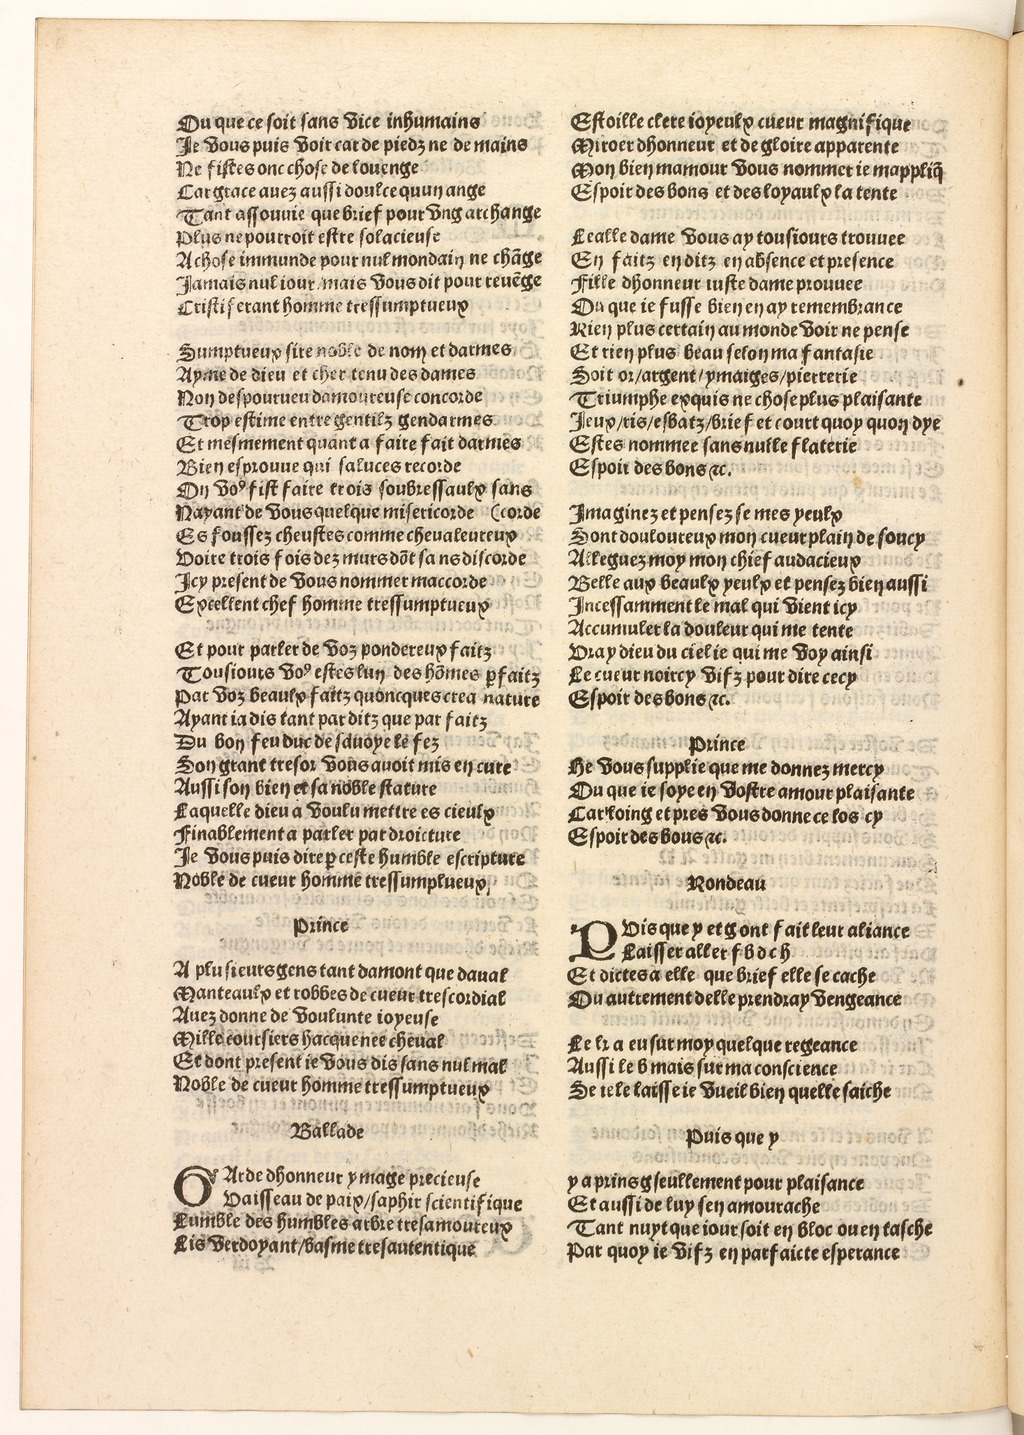 Ou que ce soit sans vice inhumains
Je vous puis voir car de piedz ne de mains
Ne fistes onc chose de louenge
Car grace auez aussi doulce quun ange
Tant assouuie que brief pour vng archange
Plus ne pourroit estre solacieuse
A chose immunde pour nul mondain ne chãge
Jamais nul iour/mais vous dit pour reuẽge
Cristiferant homme tressumptueux

Sumptueux sire noble de nom et darmes
Ayme de dieu et cher tenu des dames
Non despourueu damoureuse concorde
Trop estime entre gentilz gendarmes
Et mesmement quant a faire fait darmes
Bien esprouue qui saluces recorde
On voꝰ fist faire trois soubressaulx sans
Nayant de vous quelque misericorde (corde
Es foussez cheustes comme cheualeureux
Voire trois fois dez murs dõt sans discorde
Icy present de vous nommer maccorde
Excellent chef homme tressumptueux

Et pour parler de voz pondereux faitz
Tousiours voꝰ estes lun des hõmes ꝑfaitz
Par voz beaulx faitz quoncques crea nature
Ayant iadis tant par ditz que par faitz
Du bon feu duc de sauoye le fez
Son grant tresor vous auoit mis en cure
Aussi son bien et sa noble stature
Laquelle dieu a voulu mettre es cieulx
Finablement a parler par droicture
Je vous puis dire ꝑ ceste humble escripture
Noble de cueur homme tressumptueux

Prince

A plusieurs gens tant damont que daual
Manteaulx et robbes de cueur trescordial
Auez donne de voulunte ioyeuse
Mille coursiers hacquenee cheual
Et dont present ie vous dis sans nul mal
Noble de cueur homme tressumptueux

Ballade

GArde dhonneur ymage precieuse
Vaisseau de paix/saphir scientifique
Lumble des humbles arbre tresamoureux
Lis verdoyant/basme tresautentique

Estoille clere ioyeulx cueur magnifique
Miroer dhonneur et de gloire apparente
Mon bien mamour vous nommer ie mappliq̃
Espoir des bons et des loyaulx la tente

Lealle dame vous ay tousiours trouuee
En faitz en ditz en absence et presence
Fille dhonneur iuste dame prouuee
Ou que ie fusse bien en ay remembrance
Rien plus certain au monde voir ne pense
Et rien plus beau selon ma fantasie
Soit or/argent/ymaiges/pierrerie
Triumphe exquis ne chose plus plaisante
Jeux/ris/esbatz/brief et court quoy quon dye
Estes nommee sans nulle flaterie
Espoir des bons ⁊c.

Imaginez et pensez se mes yeulx
Sont douloureux mon cueur plain de soucy
Alleguez moy mon chief audacieux
Belle aux beaulx yeulx et pensez bien aussi
Incessamment le mal qui vient icy
Accumuler la douleur qui me tente
Vray dieu du ciel ie qui me voy ainsi
Le cueur noircy vifz pour dire cecy
Espoir des bons ⁊c.

Prince
He vous supplie que me donnez mercy
Ou que ie soye en vostre amour plaisante
Car loing et pres vous donne ce los cy
Espoir des bous ⁊c.

Rondeau

PVis que y et g ont fait leur aliance
Laisser aller f b d c h
Et dictes a elle que brief elle se cache
Ou autrement delle prendray vengeance

Le l r a eu sur moy quelque regeance
Aussi le b mais sur ma conscience
Se ie le laisse ie vueil bien quelle saiche

Puis que y

y a prins g seullement pour plaisance
Et aussi de luy sen amourache
Tant nuyt que iour soit en bloc ou en tasche
Par quoy ie vifz en parfaicte esperance